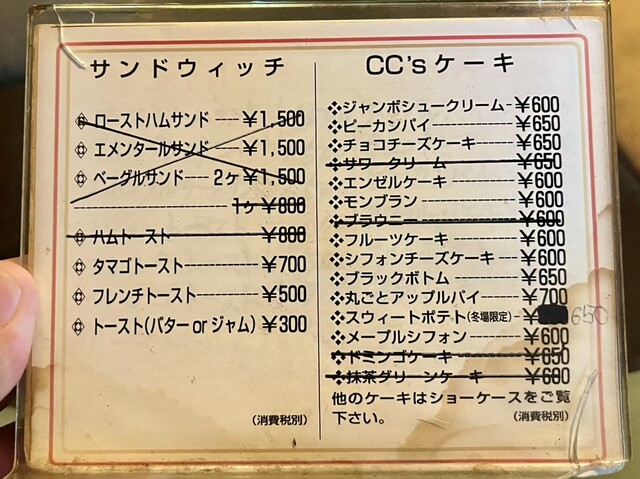 サンドウィッチ
ローストハムサンド ---- ¥1,500
エメンタールサンド ¥1,500
ベーグルサンド -- 2ケ ¥1,500
1ケ ¥800
ハムトースト ¥800
タマゴトースト ¥700
フレンチトースト ¥500
トースト(バター or ジャム) ¥300
(消費税別)
CC'sケーキ
ジャンボシュークリーム ¥600
ピーカンパイ ¥650
チョコチーズケーキ ¥650
サワークリーム ¥650
エンゼルケーキ ¥600
モンブラン ¥600
ブラウニー ¥600
フルーツケーキ ¥600
シフォンチーズケーキ ¥600
ブラックボトム ¥650
丸ごとアップルパイ ¥700
スウィートポテト(冬場限定) ¥ 650
メープルシフォン ¥600
ドミンゴケーキ ¥650
抹茶グリーンケーキ ¥600
他のケーキはショーケースをご覧
下さい。 (消費税別)